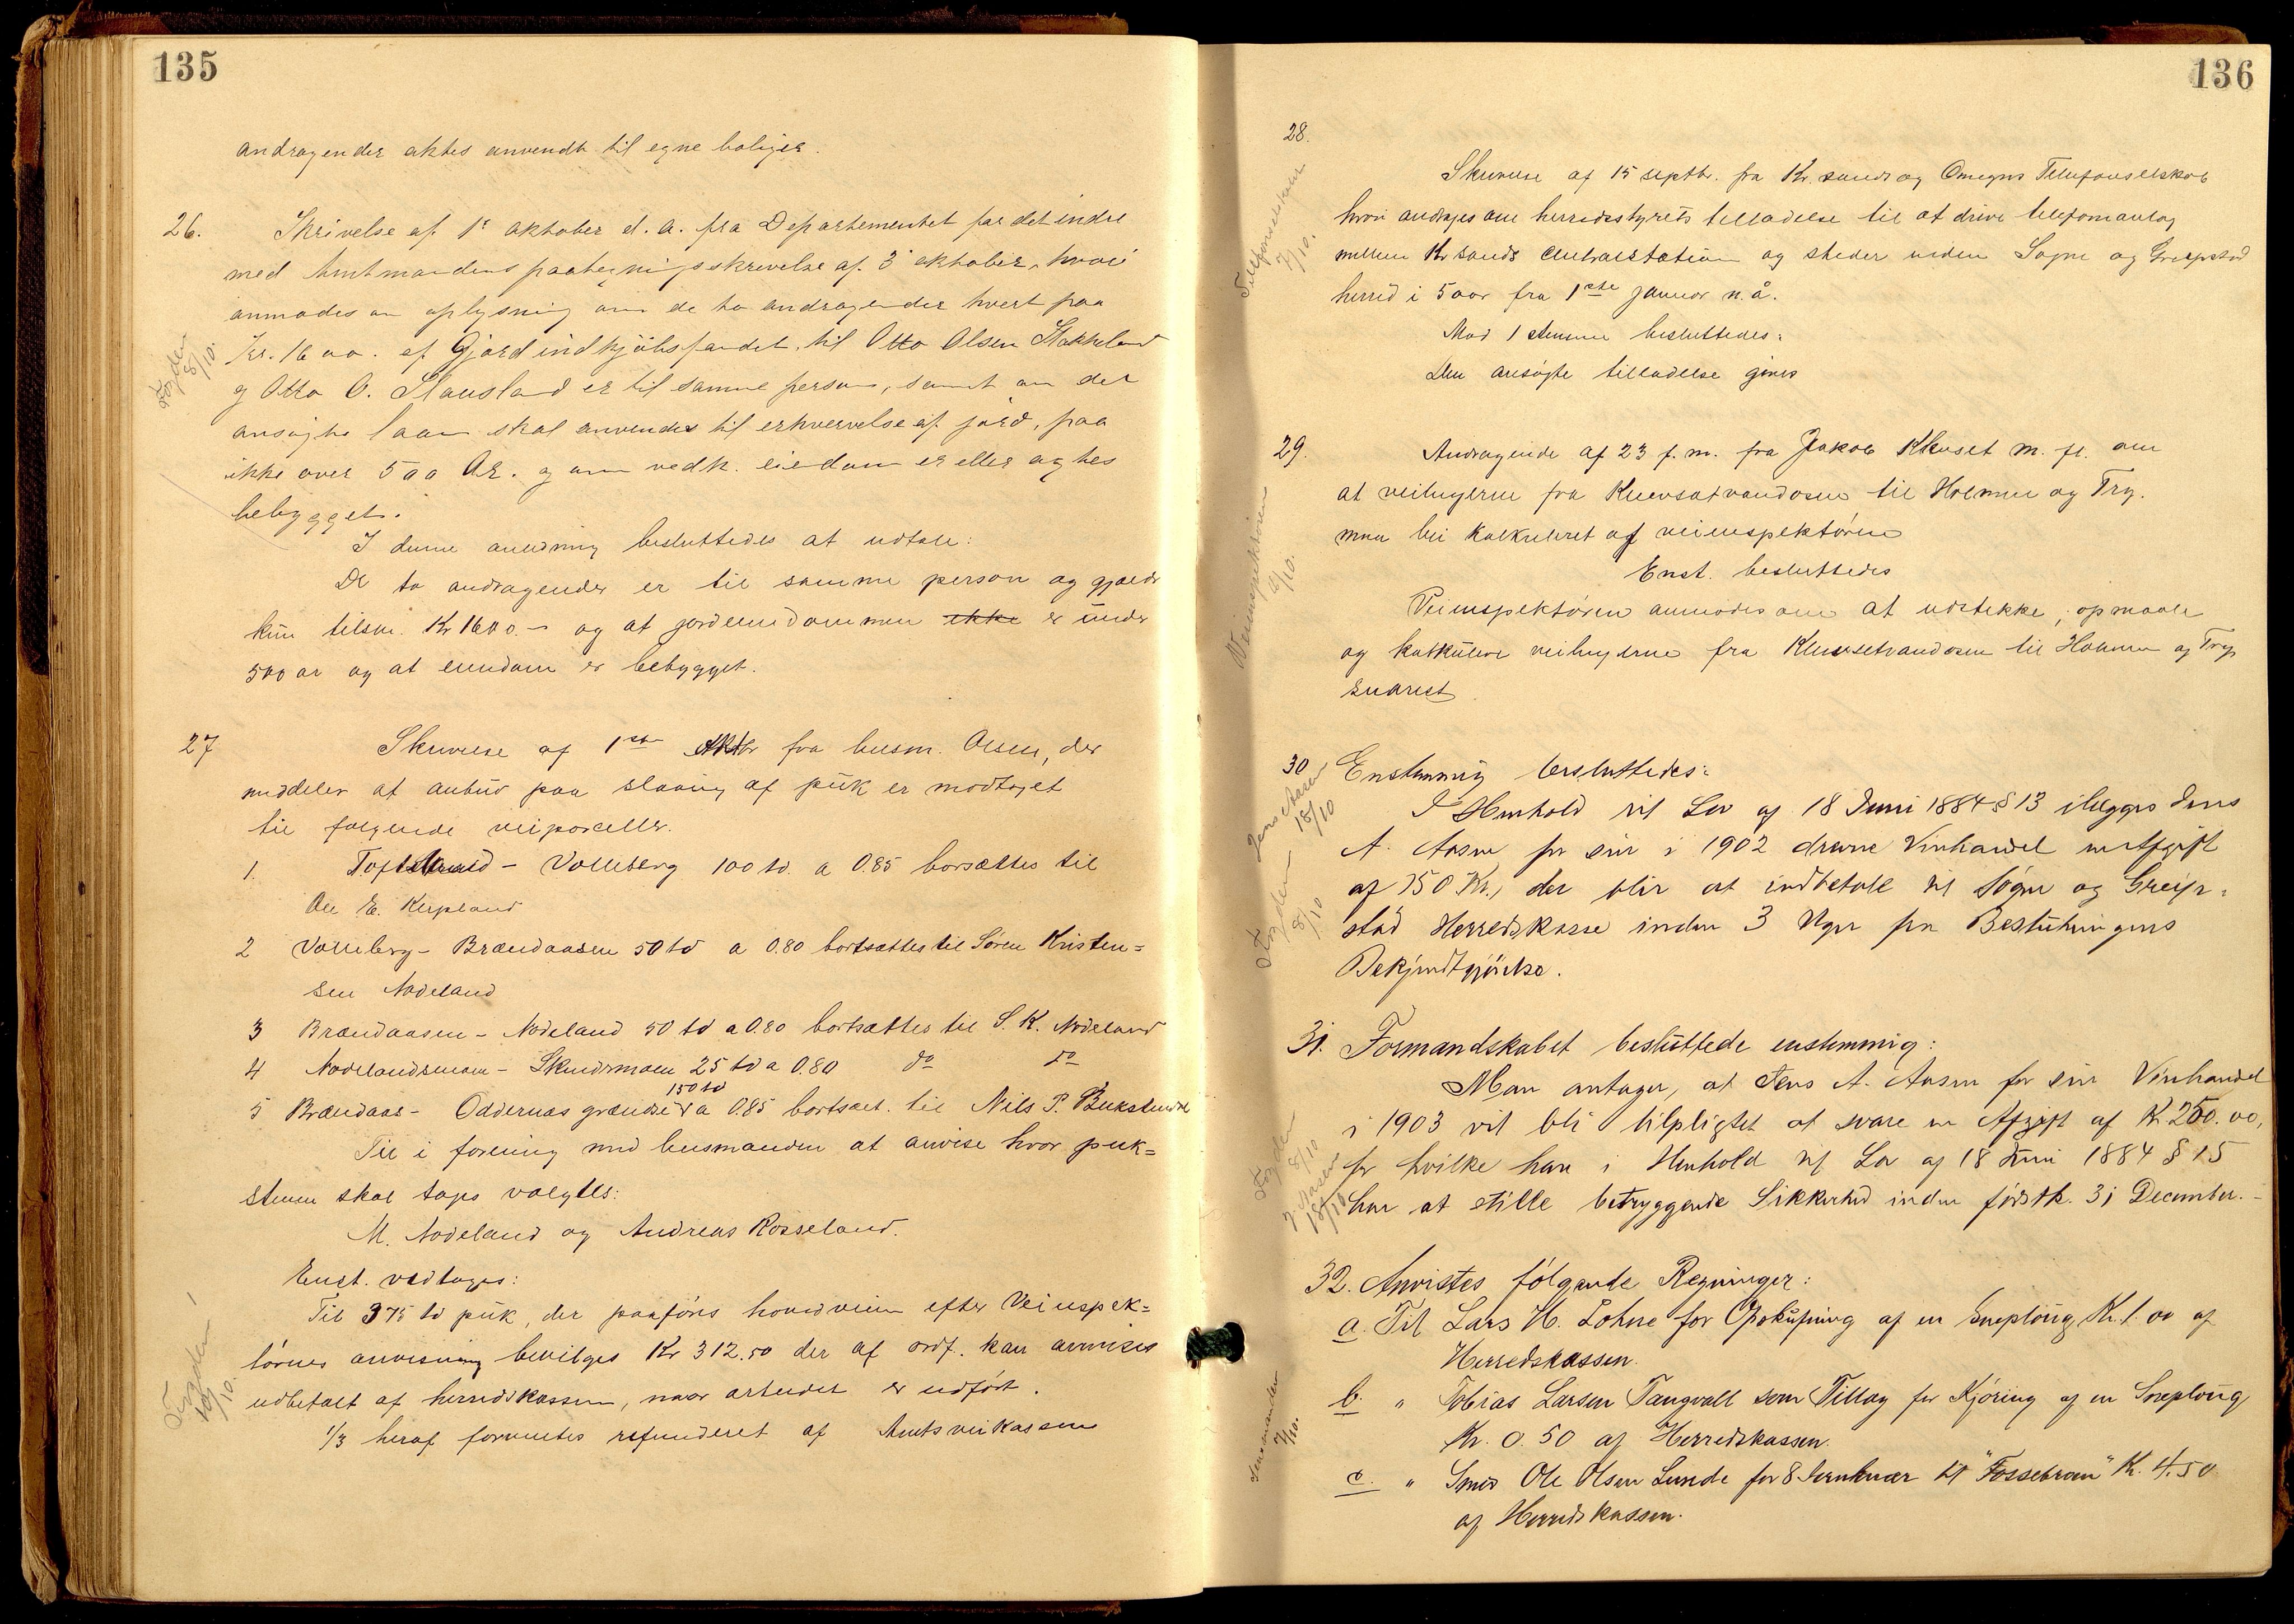 135
andragender aktes anvendt til egne boliger.
26. Skrivelse af 1e oktober d. a. fra Departementet for det indre
med Amtmandens paategningsskrivelse af 3 oktober, hvori
anmodes om oplysning om de to andragender hvert paa
Kr. 1600. af Gjordindkjöbsfondet til Otto Olsen Stakkeland
og Otto O. Slausland er til samme person, samt om det
ansøgte laan skal anvendes til erhvervelse af jord, paa
ikke over 500 Ar. og om vedk. eiendom er eller agtes
bebygget.
Fogden
8/10.
I denne anledning besluttedes at udtale:
De to andragender er til samme person og gjælder
kun tilsm. Kr 1600.- og at jordeiendommen ikke er under
500 ar og at eiendom er bebygget.
27 Skrivelse af 1ste oktbr fra lensm. Olsen, der
meddeler at anbud paa slaaing af puk er modtaget
til følgende veiparceller.
1. Toftelund - Volleberg 100 td. a 0.85 borsættes til
Ole E. Repland
2 Volleberg - Brændaasen 50 td a 0.80 bortsættes til Søren Kristen=
sen Nodeland
3 Brændaasen - Nodeland 50 td a 0.80 bortsættes til S. K. Nodeland
4 Nodelandsmoen - Skindsmoen 25 td a 0.80 do do
5 Brændaas - Oddernæs grændse 150 td a 0.85 bortsæt. til Nils P. Bukstendal
Til i forening med lensmanden at anvise hvor puk=
stenen skal tages valgtes:
M. Nodeland og Andreas Rosseland.
Enst. vedtoges:
Til 375 td puk, der paaføres hovedveien efter Veiinspek=
törens anvisning bevilges Kr 312.50 der af ordf. kan anvises
udbetalt af herredskassen, naar arbeidet er udfört.
1/3 heraf forventes refunderet af Amtsveikassen
Fogden
10/10.
136
28.
Skrivelse af 15 septbr. fra Kr.sands og Omegns Telefonselskab
hvori andrages om herredsstyrets tilladelse til at drive telefonanlæg
mellem Kr sands Centralstation og steder inden Søgne og Greipstad
herred i 5 aar fra 1ste januar n.å.
Telefonselskabet
7/10.
Mod 1 stemme besluttedes:
Den ansøgte tilladelse gives
29. Andragende af 23 f. m. fra Jakob Kleuset m. fl. om
at veilinjerne fra Kleusetvandosen til Holmen og Try.
maa bli kalkuleret af veiinspektören
Enst. besluttedes
Veiinspektören anmodes om at udstikke, opmaale
og kalkulere veilinjerne fra Kleusetvandosen til Holmen og Try
snarest
Veiinspektören
12/10.
30 Enstemmig besluttedes:
I Henhold til Lov af 18 Juni 1884 § 13 ilægges Jens
A. Aasen for sin i 1902 drevne Vinhandel en Afgift
af 750 Kr., der blir at indbetale til Søgne og Greip=
stad Herredskasse inden 3 Uger fra Beslutningens
Bekjendtgjörelse.
Jens Aasen
18/10
Fogden
8/10
31. Formandskabet besluttede enstemmig:
Man antager, at Jens A. Aasen for sin Vinhandel
i 1903 vil bli tilpligtet at svare en Afgift af Kr. 250.00,
for hvilke han i Henhold til Lov af 18 Juni 1884 § 15
har at stille betryggende Sikkerhed inden förstk. 31 December. -
Fogden
8/10
J Aasen
18/10
32. Anvistes följgende Regninger:
a. Til Lars H. Lohne for Opskufning af en Sneploug Kr. 1.00 af
Herredskassen.
b. " Tobias Larsen Tangvall som Tillæg for Kjöring af en Sneploug
Kr. 0.50 af Herredskassen.
c. " Smed Ole Olsen Lunde for 8 Jernknær til "Fossebroen" Kr. 4.50
af Herredskassen.
Lensmanden
7/10.